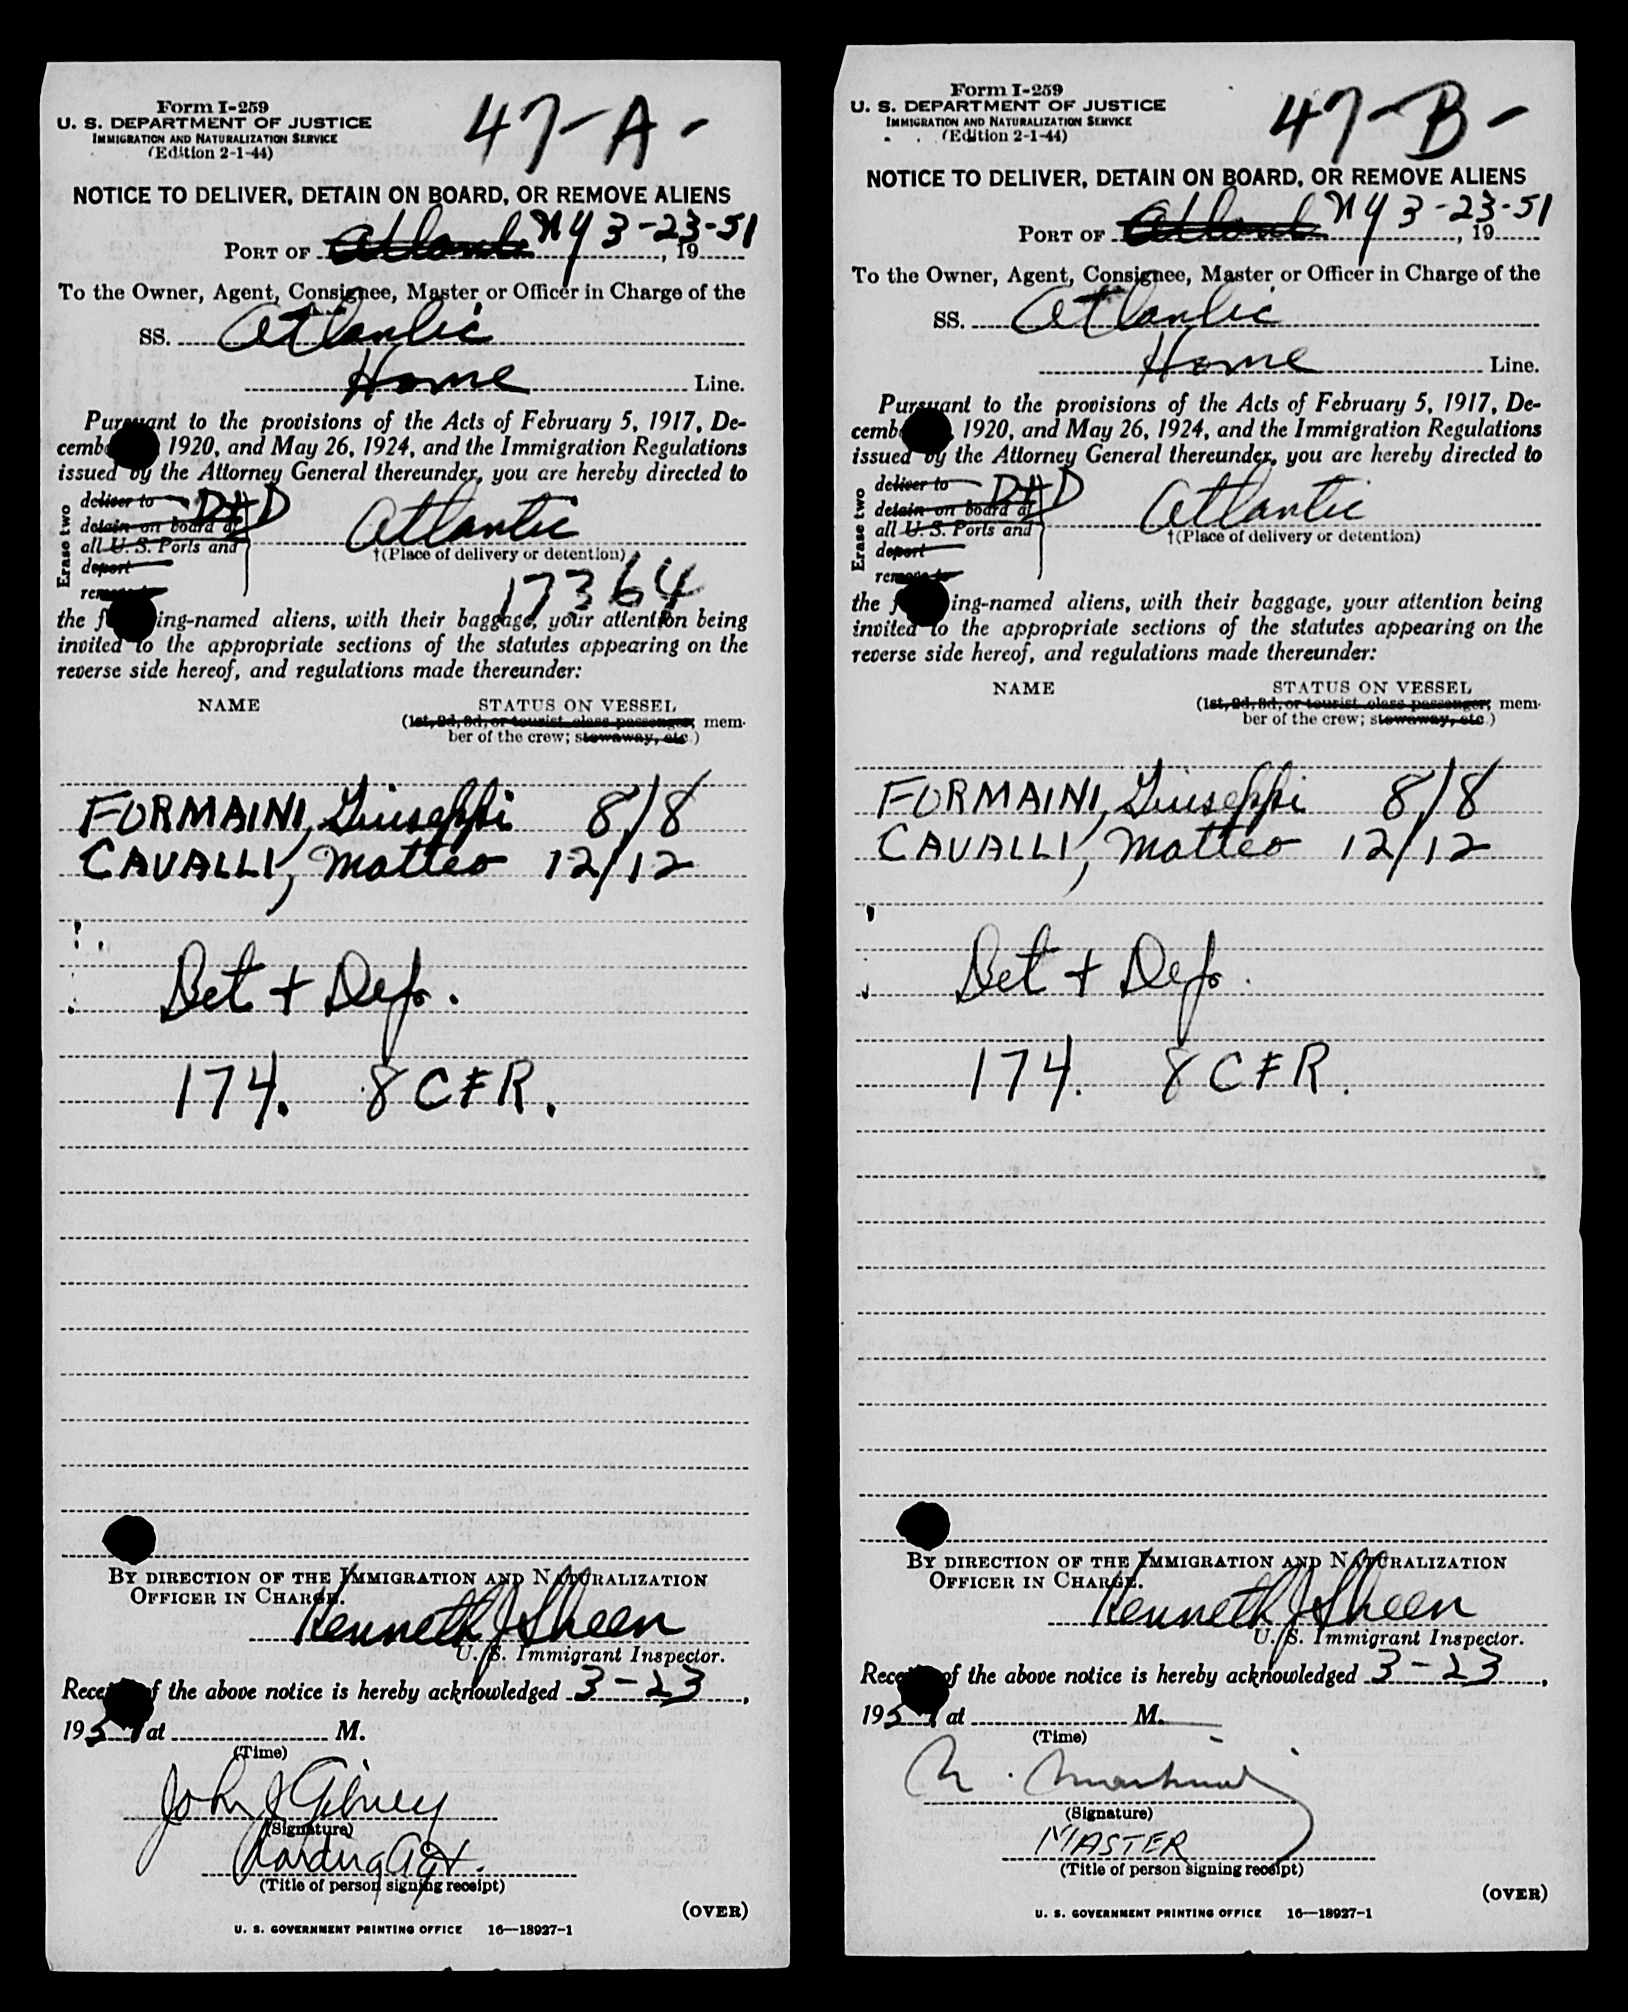 Form I-259
U. S. DEPARTMENT OF JUSTICE
IMMIGRATION AND NATURALIZATION SERVICE
(Edition 2-1-44)
47-A-
NOTICE TO DELIVER, DETAIN ON BOARD, OR REMOVE ALIENS
PORT OF Atlantic NY 3-23-51, 19
To the Owner, Agent, Consignee, Master or Officer in Charge of the
SS. Atlantic
Home Line.
Pursuant to the provisions of the Acts of February 5, 1917, De-
cemb 1920, and May 26, 1924, and the Immigration Regulations
issued by the Attorney General thereunder, you are hereby directed to
Erase two
deliver to D+D
detain on board at
all U. S. Ports and
deport
remove to
Atlantic
†(Place of delivery or detention)
17364
the f ing-named aliens, with their baggage, your attention being
invited to the appropriate sections of the statutes appearing on the
reverse side hereof, and regulations made thereunder:
NAME STATUS ON VESSEL
(1st, 2d, 3d, or tourist class passenger; mem-
ber of the crew; stowaway, etc.)
FORMAINI, Giuseppi 8/8
CAVALLI, Matteo 12/12
Det + Dep.
174. 8 CFR.
BY DIRECTION OF THE IMMIGRATION AND NATURALIZATION
OFFICER IN CHARGE.
Kenneth J Sheen
U. S. Immigrant Inspector.
Rece of the above notice is hereby acknowledged 3-23,
1951 at M.
(Time)
John J Gibney
(Signature)
Boarding Agt.
(Title of person signing receipt)
(OVER)
U. S. GOVERNMENT PRINTING OFFICE 16—18927-1
Form I-259
U. S. DEPARTMENT OF JUSTICE
IMMIGRATION AND NATURALIZATION SERVICE
(Edition 2-1-44)
47-B-
NOTICE TO DELIVER, DETAIN ON BOARD, OR REMOVE ALIENS
PORT OF Atlantic NY 3-23-51, 19
To the Owner, Agent, Consignee, Master or Officer in Charge of the
SS. Atlantic
Home Line.
Pursuant to the provisions of the Acts of February 5, 1917, De-
cemb 1920, and May 26, 1924, and the Immigration Regulations
issued by the Attorney General thereunder, you are hereby directed to
Erase two
deliver to D+D
detain on board at
all U. S. Ports and
deport
remove to
Atlantic
†(Place of delivery or detention)
the f ing-named aliens, with their baggage, your attention being
invited to the appropriate sections of the statutes appearing on the
reverse side hereof, and regulations made thereunder:
NAME STATUS ON VESSEL
(1st, 2d, 3d, or tourist class passenger; mem-
ber of the crew; stowaway, etc.)
FORMAINI, Giuseppi 8/8
CAVALLI, Matteo 12/12
Det + Dep.
174. 8 CFR.
BY DIRECTION OF THE IMMIGRATION AND NATURALIZATION
OFFICER IN CHARGE.
Kenneth J Sheen
U. S. Immigrant Inspector.
Rece of the above notice is hereby acknowledged 3-23,
1951 at M.
(Time)
(Signature)
MASTER
(Title of person signing receipt)
(OVER)
U. S. GOVERNMENT PRINTING OFFICE 16—18927-1